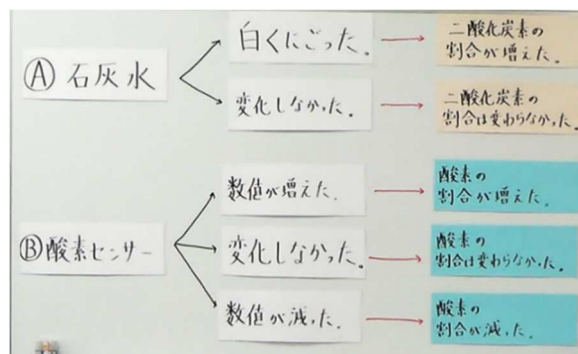 Ⓐ石灰水
白くにごった。
二酸化炭素の
割合が増えた。
変化しなかった。
二酸化炭素の
割合は変わらなかった。
Ⓑ酸素センサー
数値が増えた。
酸素の
割合が増えた。
変化しなかった。
酸素の
割合は変わらなかった。
数値が減った。
酸素の
割合が減った。